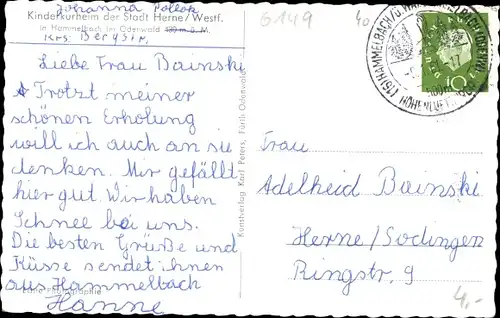 Johanna Pollok
Kinderkurheim der Stadt Herne/Westf.
in Hammelbach im Odenwald 480 m ü. M.
Krs. Bergstr.
Liebe Frau Bainski
Trotzt meiner
schönen Erholung
will ich auch an sie
denken. Mir gefällt
hier gut. Wir haben
Schnee bei uns.
Die besten Grüße und
Küsse sendet ihnen
aus Hammelbach
Hanne
Echte Photographie
Kunstverlag Karl Peters, Fürth Odenwald
G149
40
(16) HAMMELBACH
HÖHENLUFT
10
Frau
Adelheid Bainski
Herne/Sodingen
Ringstr. 9
4,-